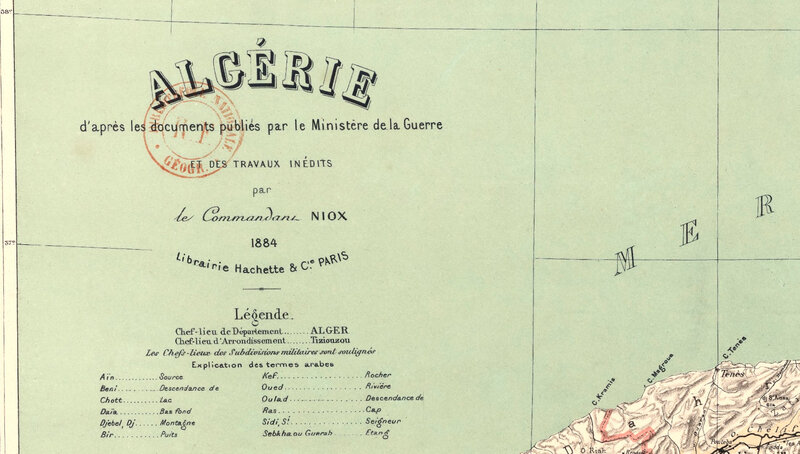 38°
ALGÉRIE
d'après les documents publiés par le Ministère de la Guerre
ET DES TRAVAUX INÉDITS
par
le Commandant NIOX
1884
Librairie Hachette & Cie PARIS
NATIONALE
GÉOGR.
37°
MER
Légende.
Chef-lieu de Département ....... ALGER
Chef-lieu d'Arrondissement ....... Tiziouzou
Les Chefs-lieux des Subdivisions militaires sont soulignés
Explication des termes arabes
Aïn ............ Source
Beni ............ Descendance de
Chott ............ Lac
Daïa ............ Bas fond
Djebel, Dj. ..... Montagne
Bir ............ Puits
Kef ............ Rocher
Oued ............ Rivière
Oulad ............ Descendance de
Ras ............ Cap
Sidi, St. ............ Seigneur
Sebkha ou Guerah ..... Etang
C. Kramis
C. Magroua
C. Ténès
Ténès
a
h
D
Chélif